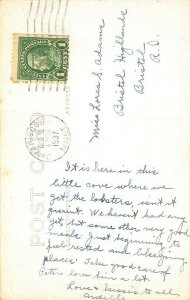 Miss Lorea S. Adams
Bristol Highlands
Bristol
R.I.
1 CENT 1
POST C
It is here in this
little cove where we
get the lobsters, isn't it
quaint. We haven't had any
yet but some other very good
meals. Just beginning to
feel rested and like going
places. Take good care of
Peter love him a bit
Love & kisses to all